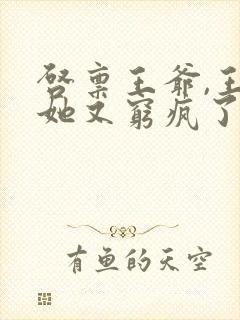 启禀王爷,王
她又窮疯了
有鱼的天空